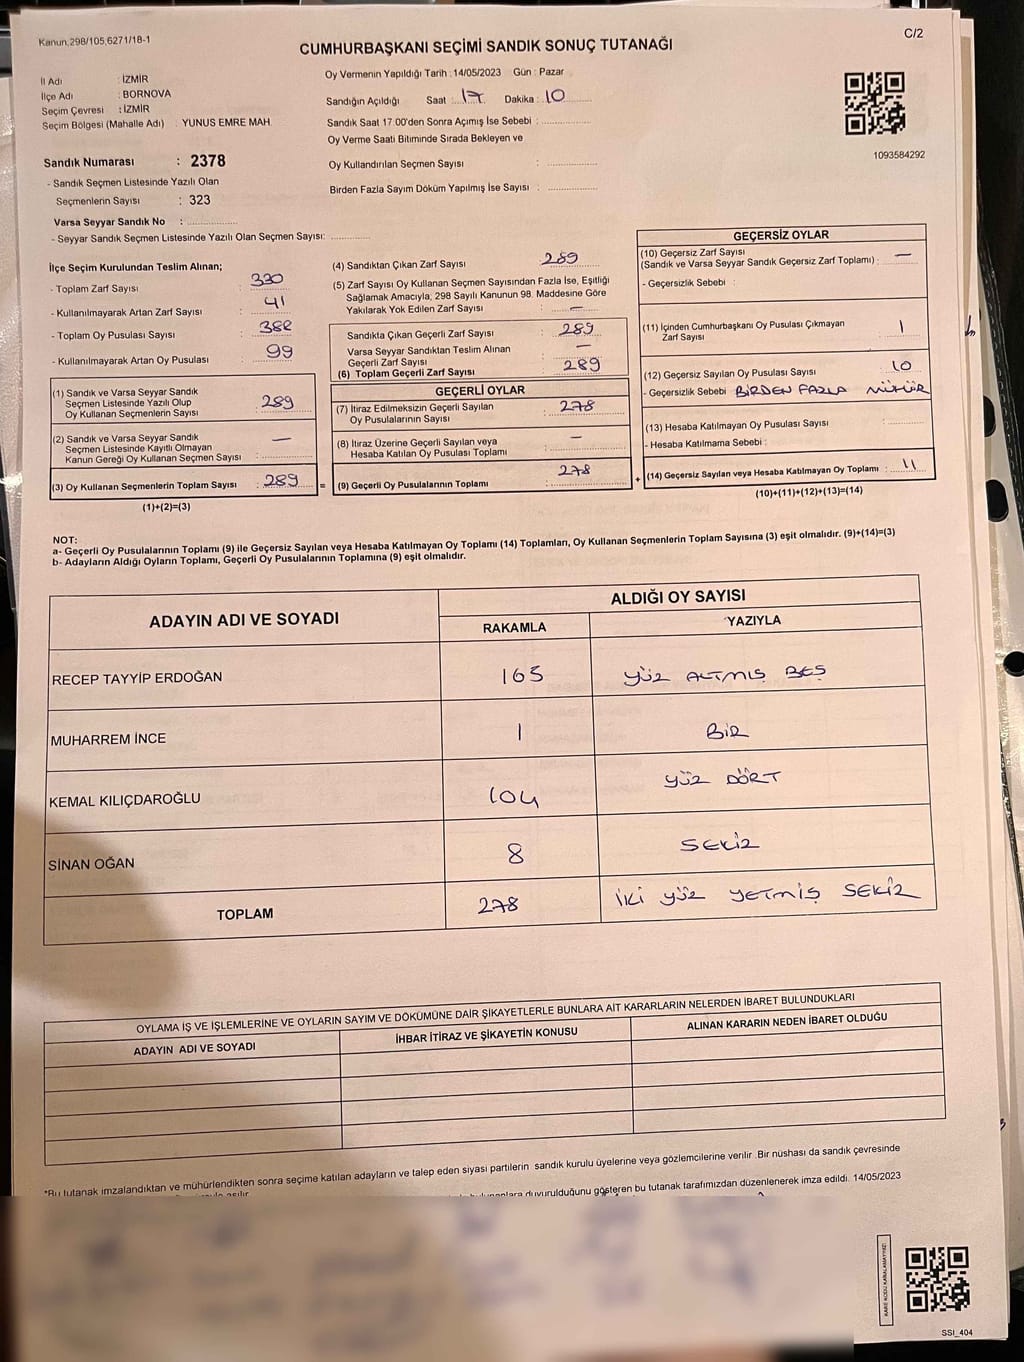 Kanun.298/105,6271/18-1
C/2
CUMHURBAŞKANI SEÇİMİ SANDIK SONUÇ TUTANAĞI
İl Adı : İZMİR
İlçe Adı : BORNOVA
Seçim Çevresi : İZMİR
Seçim Bölgesi (Mahalle Adı) : YUNUS EMRE MAH.
Sandık Numarası : 2378
- Sandık Seçmen Listesinde Yazılı Olan
Seçmenlerin Sayısı : 323
Varsa Seyyar Sandık No :
- Seyyar Sandık Seçmen Listesinde Yazılı Olan Seçmen Sayısı:
Oy Vermenin Yapıldığı Tarih : 14/05/2023 Gün : Pazar
Sandığın Açıldığı Saat : 17 Dakika : 10
Sandık Saat 17.00'den Sonra Açılmış İse Sebebi :
Oy Verme Saati Bitiminde Sırada Bekleyen ve
Oy Kullandırılan Seçmen Sayısı :
Birden Fazla Sayım Döküm Yapılmış İse Sayısı :
1093584292
İlçe Seçim Kurulundan Teslim Alınan;
- Toplam Zarf Sayısı : 330
- Kullanılmayarak Artan Zarf Sayısı : 41
- Toplam Oy Pusulası Sayısı : 388
- Kullanılmayarak Artan Oy Pusulası : 99
(1) Sandık ve Varsa Seyyar Sandık
Seçmen Listesinde Yazılı Olup
Oy Kullanan Seçmenlerin Sayısı : 289
(2) Sandık ve Varsa Seyyar Sandık
Seçmen Listesinde Kayıtlı Olmayan
Kanun Gereği Oy Kullanan Seçmen Sayısı : —
(3) Oy Kullanan Seçmenlerin Toplam Sayısı : 289 =
(1)+(2)=(3)
(4) Sandıktan Çıkan Zarf Sayısı : 289
(5) Zarf Sayısı Oy Kullanan Seçmen Sayısından Fazla İse, Eşitliği
Sağlamak Amacıyla; 298 Sayılı Kanunun 98. Maddesine Göre
Yakılarak Yok Edilen Zarf Sayısı : —
Sandıkta Çıkan Geçerli Zarf Sayısı : 289
Varsa Seyyar Sandıktan Teslim Alınan
Geçerli Zarf Sayısı : —
(6) Toplam Geçerli Zarf Sayısı : 289
GEÇERLİ OYLAR
(7) İtiraz Edilmeksizin Geçerli Sayılan
Oy Pusulalarının Sayısı : 278
(8) İtiraz Üzerine Geçerli Sayılan veya
Hesaba Katılan Oy Pusulası Toplamı : —
(9) Geçerli Oy Pusulalarının Toplamı : 278 +
GEÇERSİZ OYLAR
(10) Geçersiz Zarf Sayısı
(Sandık ve Varsa Seyyar Sandık Geçersiz Zarf Toplamı) : —
- Geçersizlik Sebebi :
(11) İçinden Cumhurbaşkanı Oy Pusulası Çıkmayan
Zarf Sayısı : 1
(12) Geçersiz Sayılan Oy Pusulası Sayısı : 10
- Geçersizlik Sebebi BİRDEN FAZLA MÜHÜR
(13) Hesaba Katılmayan Oy Pusulası Sayısı :
- Hesaba Katılmama Sebebi :
(14) Geçersiz Sayılan veya Hesaba Katılmayan Oy Toplamı : 11
(10)+(11)+(12)+(13)=(14)
NOT:
a- Geçerli Oy Pusulalarının Toplamı (9) ile Geçersiz Sayılan veya Hesaba Katılmayan Oy Toplamı (14) Toplamları, Oy Kullanan Seçmenlerin Toplam Sayısına (3) eşit olmalıdır. (9)+(14)=(3)
b- Adayların Aldığı Oyların Toplamı, Geçerli Oy Pusulalarının Toplamına (9) eşit olmalıdır.
ADAYIN ADI VE SOYADI
ALDIĞI OY SAYISI
RAKAMLA YAZIYLA
RECEP TAYYİP ERDOĞAN 165 YÜZ ALTMIŞ BEŞ
MUHARREM İNCE 1 BİR
KEMAL KILIÇDAROĞLU 104 YÜZ DÖRT
SİNAN OĞAN 8 SEKİZ
TOPLAM 278 İKİ YÜZ YETMİŞ SEKİZ
OYLAMA İŞ VE İŞLEMLERİNE VE OYLARIN SAYIM VE DÖKÜMÜNE DAİR ŞİKAYETLERLE BUNLARA AİT KARARLARIN NELERDEN İBARET BULUNDUKLARI
ADAYIN ADI VE SOYADI İHBAR İTİRAZ VE ŞİKAYETİN KONUSU ALINAN KARARIN NEDEN İBARET OLDUĞU
*Bu tutanak imzalandıktan ve mühürlendikten sonra seçime katılan adayların ve talep eden siyasi partilerin sandık kurulu üyelerine veya gözlemcilerine verilir. Bir nüshası da sandık çevresinde
duyurulduğunu gösteren bu tutanak tarafımızdan düzenlenerek imza edildi. 14/05/2023
KARE KODU KARALAMAYINIZ!
SSI_404